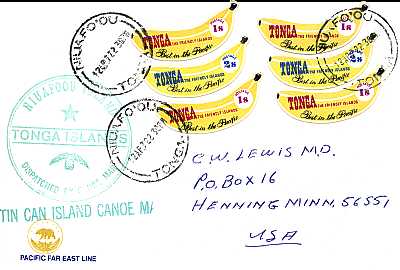 NIUAFO'OU
TONGA
TONGA THE FRIENDLY ISLANDS 1s
Best in the Pacific
TONGA THE FRIENDLY ISLANDS 2s
Best in the Pacific
TONGA THE FRIENDLY ISLANDS 1s
Best in the Pacific
TONGA THE FRIENDLY ISLANDS 1s
Best in the Pacific
TONGA THE FRIENDLY ISLANDS 2s
Best in the Pacific
TONGA THE FRIENDLY ISLANDS 1s
Best in the Pacific
NIUAFO'OU
TONGA
NIUAFO'OU
TONGA
NIUAFOOU
TONGA ISLANDS
DISPATCHED BY
TIN CAN ISLAND CANOE MA
PACIFIC FAR EAST LINE
C.W. LEWIS M.D.
P.O. BOX 16
HENNING MINN. 56551
USA